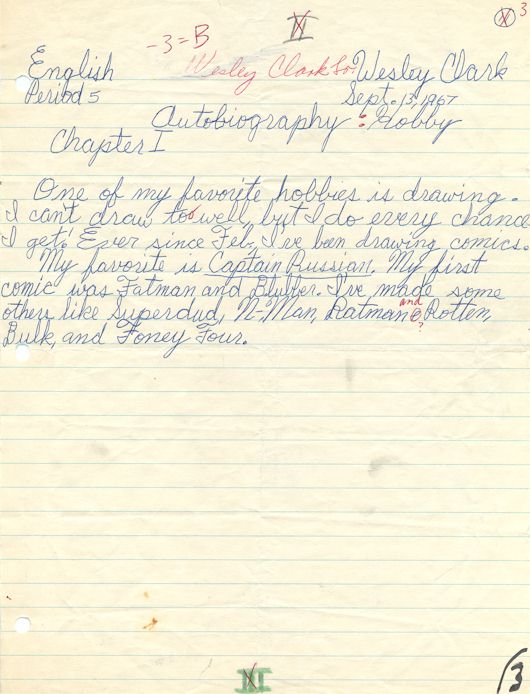 3
-3=B
III
English
Wesley Clark
Wesley Clark
Period 5
Sept. 13, 1967
Autobiography : Hobby
Chapter I
One of my favorite hobbies is drawing.
I can't draw too well, but I do every chance
I get! Ever since Feb., I've been drawing comics.
My favorite is Captain Russian. My first
comic was Fatman and Blubber. I've made some
others like Superdud, N-Man, Ratman and Rotten,
?
Bulk, and Foney Four.
III
13